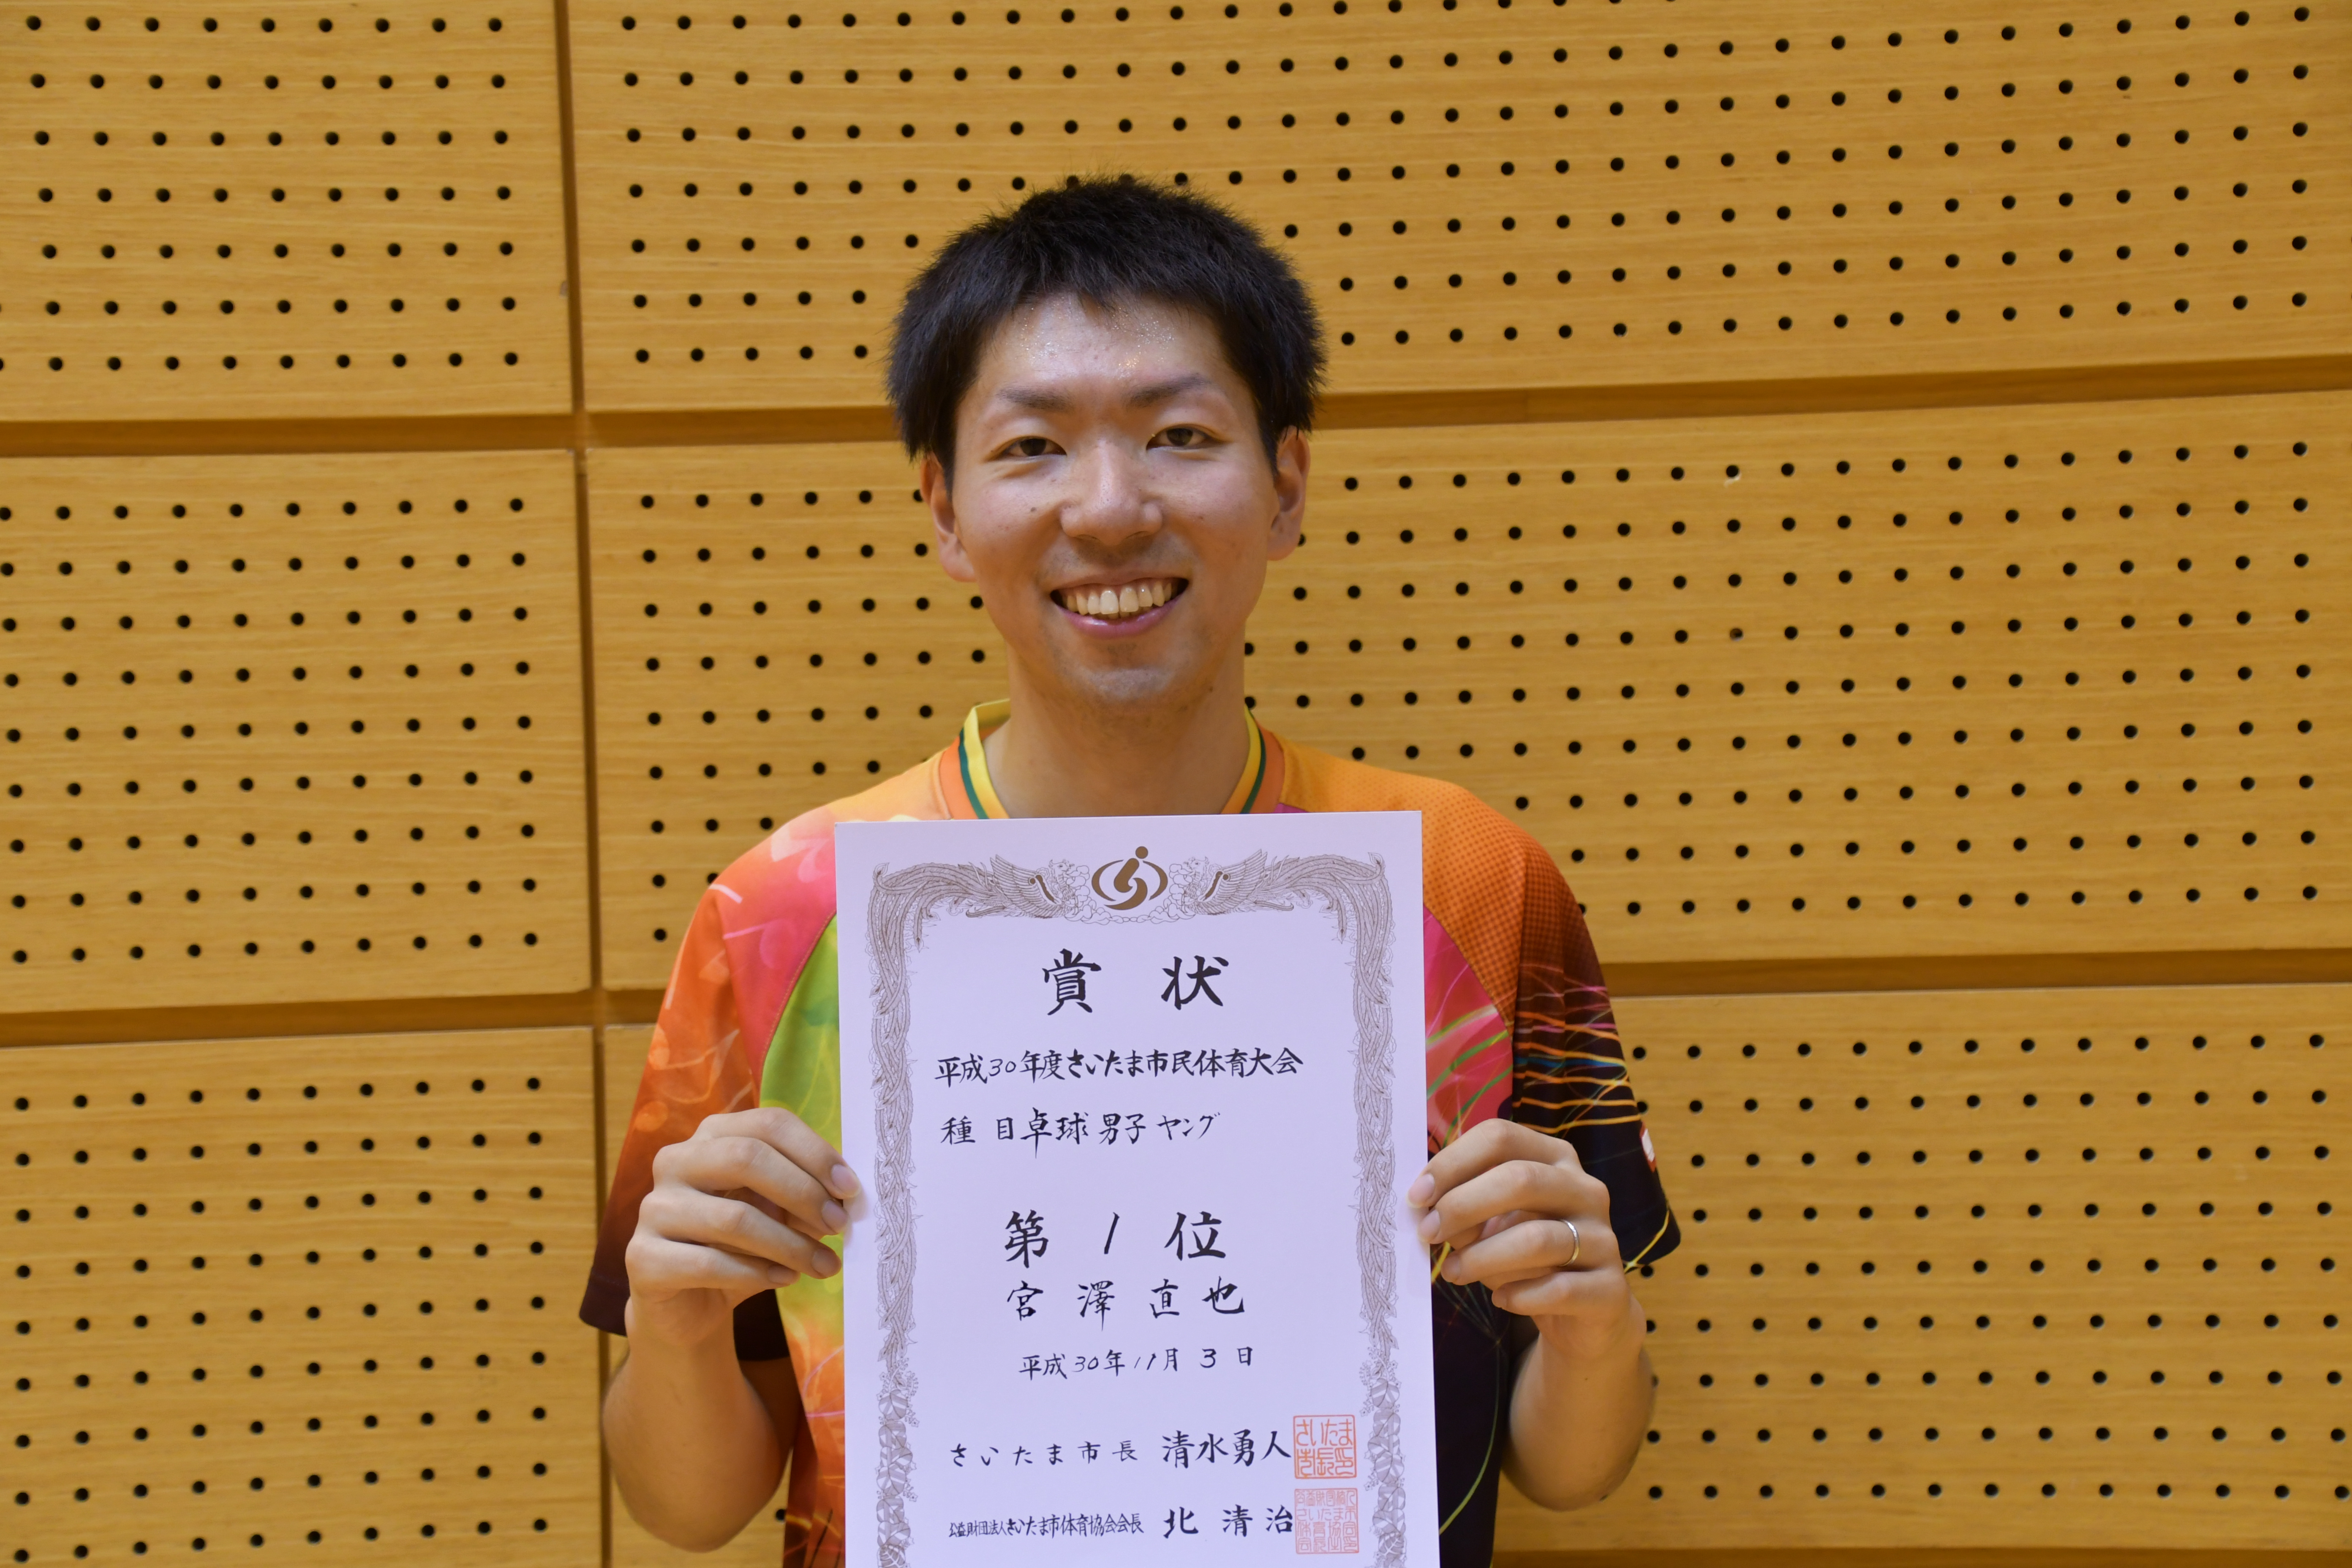 賞状
平成30年度さいたま市民体育大会
種目卓球男子ヤング
第1位
宮澤直也
平成30年11月3日
さいたま市長 清水勇人
公益財団法人さいたま市体育協会会長 北清治